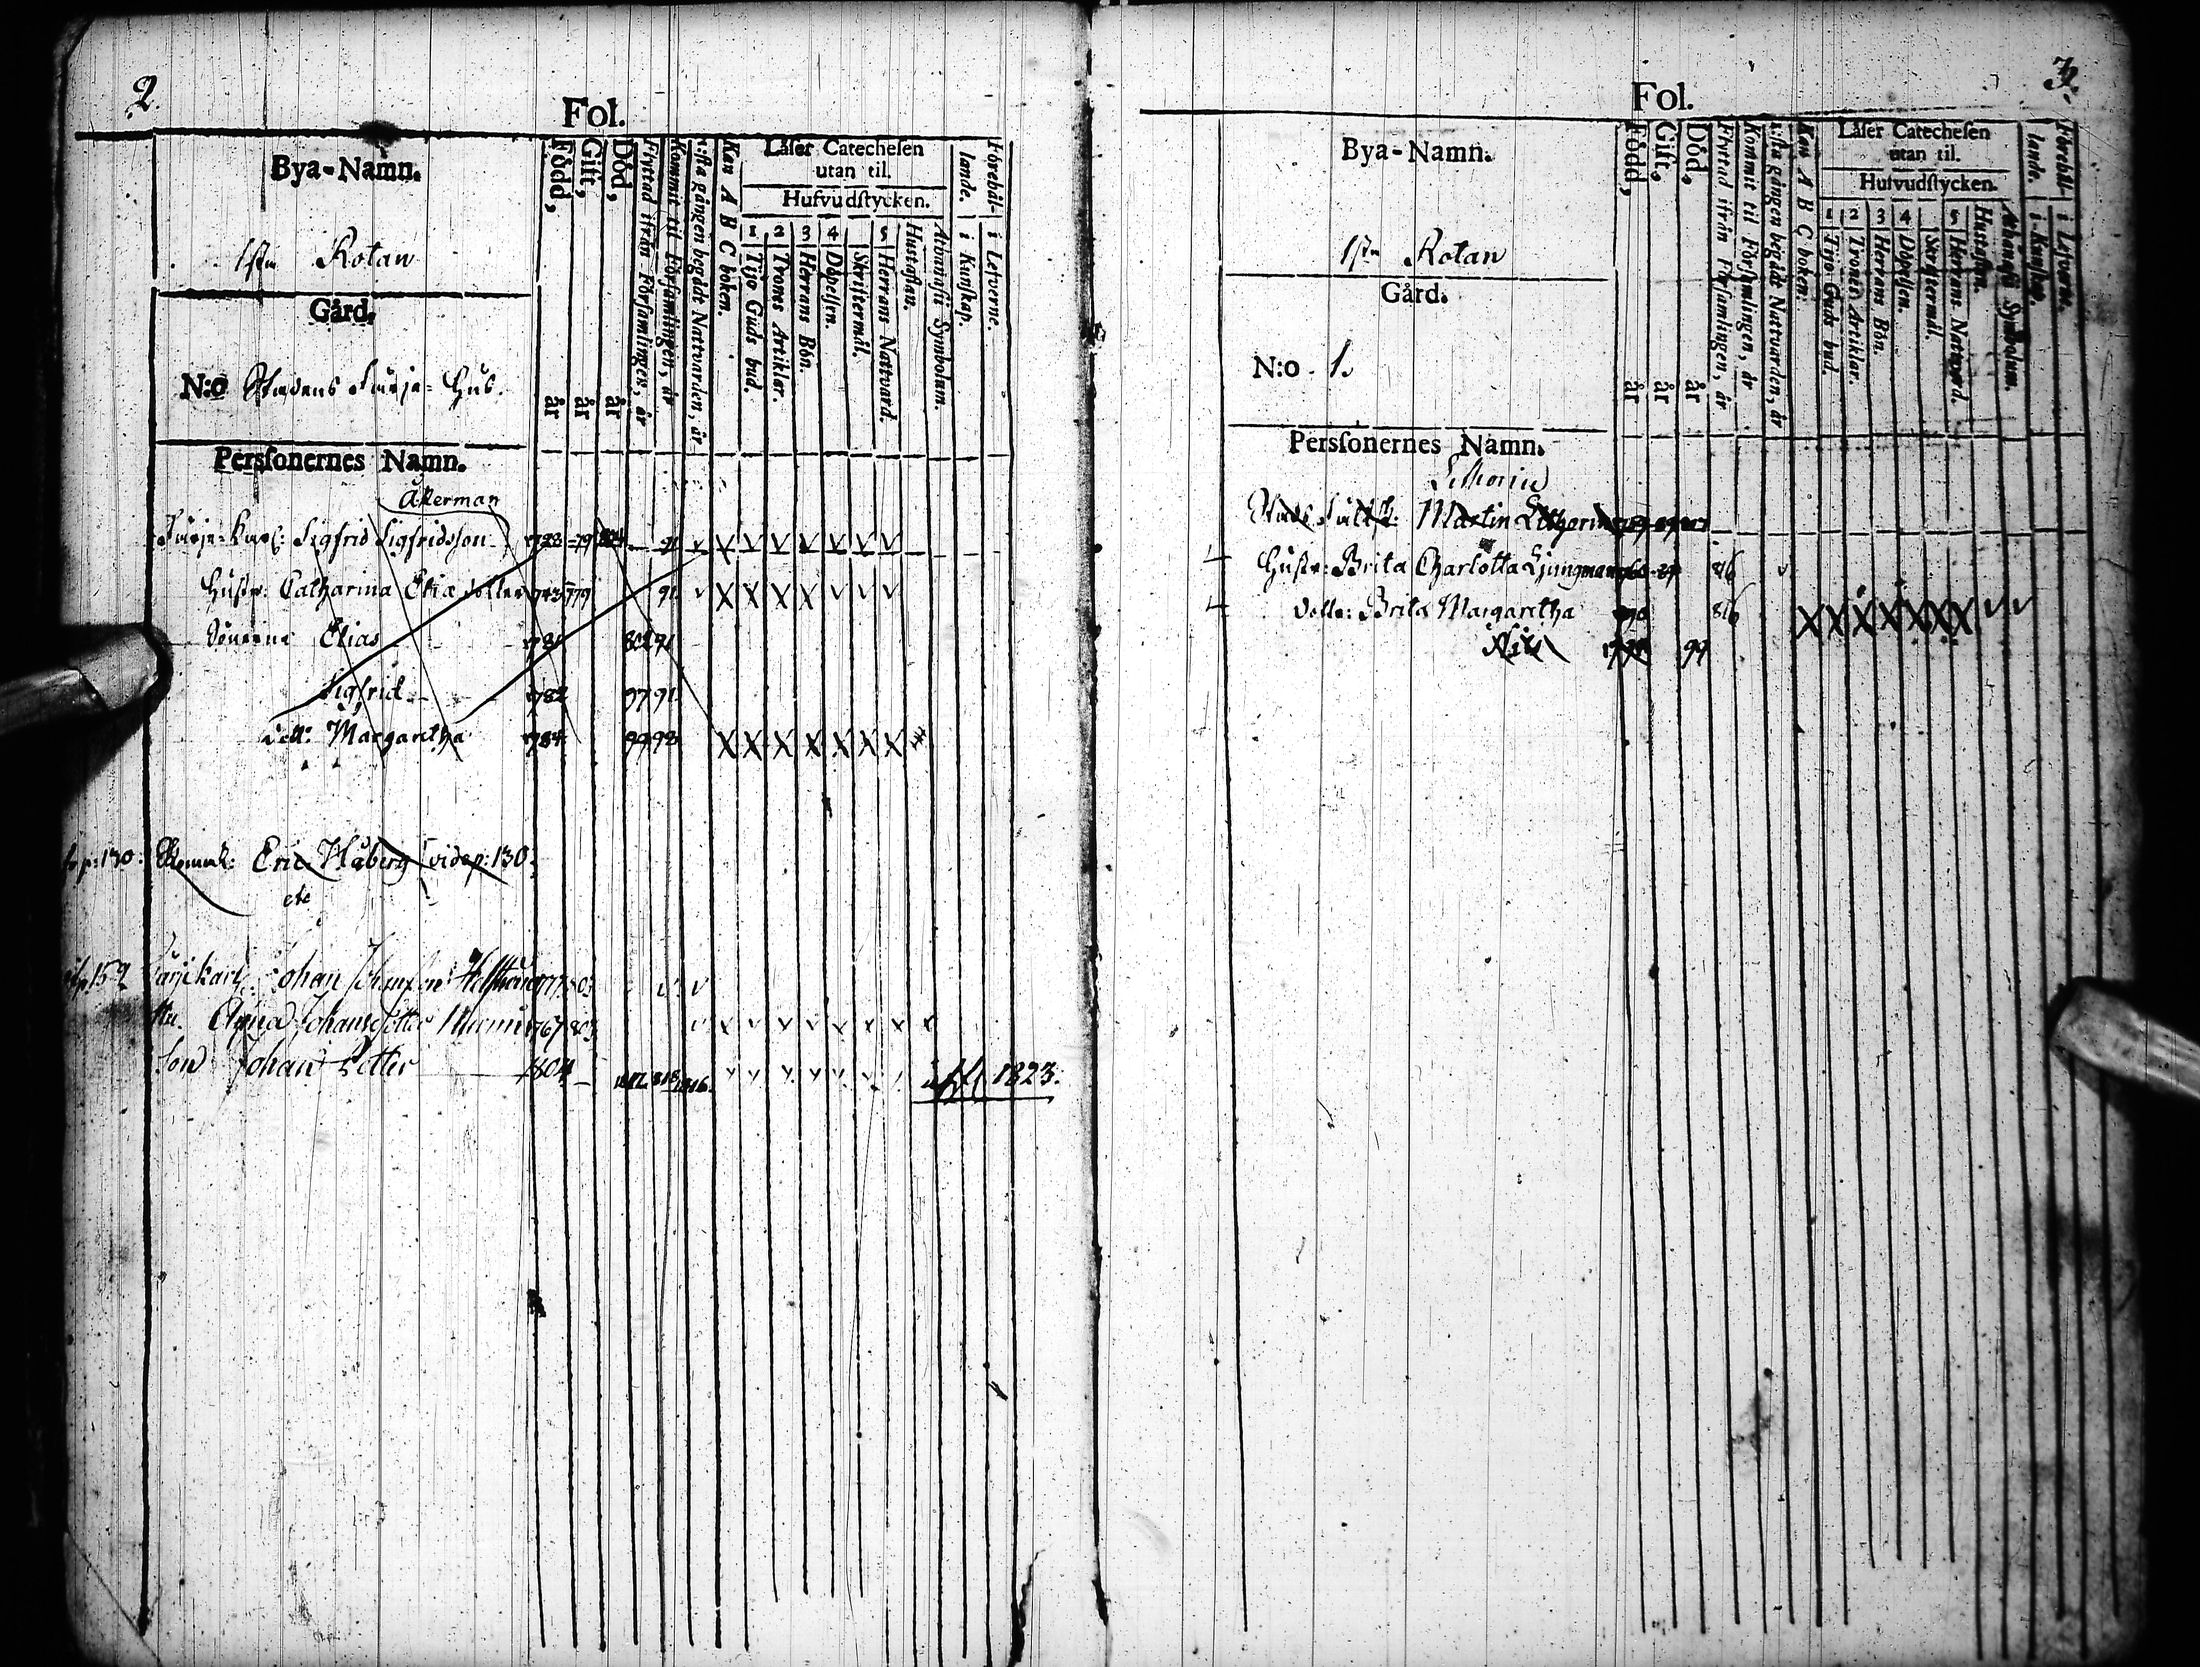 2.
Fol.
Bya-Namn.
1sta Rotan
Gård.
N:o Stadens Färje-Hus.
Född, år
Gift, år
Död, år
Flyttad ifrån Församlingen, år
Kommit til Församlingen, år
1:sta gången begådt Nattvarden, år
Kan A B C boken.
Läser Catechesen
utan til.
Hufvudstycken.
1 Tijo Guds bud.
2 Trones Artiklar.
3 Herrans Bön.
4 Döpelsen.
Skriftermål.
5 Herrans Nattvard.
Hustaflan.
Athanasii Symbolum.
Förehål-
lande.
i Kunskap.
i Lefverne.
Personernes Namn.
Åkerman
Färje-Karl: Sigfrid Sigfridsson 1728 79 91
Hustr: Catharina Eliæ dotter 1743 779 91
Sönerne Elias 1781 802 91
Sigfrid 1782 97 91
Dott: Margaretha 1784 99 98
p:130. Eric Håberg vide p:130.
etc
p 152 Färjekarl Johan Johansson 1777 803
Anna Johansdotter 1767 803
Son Johan Petter 1804 1816. 1823.
3.
Fol.
Bya-Namn.
1sta Rotan
Gård.
N:o 1.
Född, år
Gift, år
Död, år
Flyttad ifrån Församlingen, år
Kommit til Församlingen, år
1:sta gången begådt Nattvarden, år
Kan A B C boken.
Läser Catechesen
utan til.
Hufvudstycken.
1 Tijo Guds bud.
2 Trones Artiklar.
3 Herrans Bön.
4 Döpelsen.
Skriftermål.
5 Herrans Nattvard.
Hustaflan.
Athanasii Symbolum.
Förehål-
lande.
i Kunskap.
i Lefverne.
Personernes Namn.
Martin
Hustr: Brita Charlotta Ljungman 816
Dotter: Brita Margaretha 790 816
99